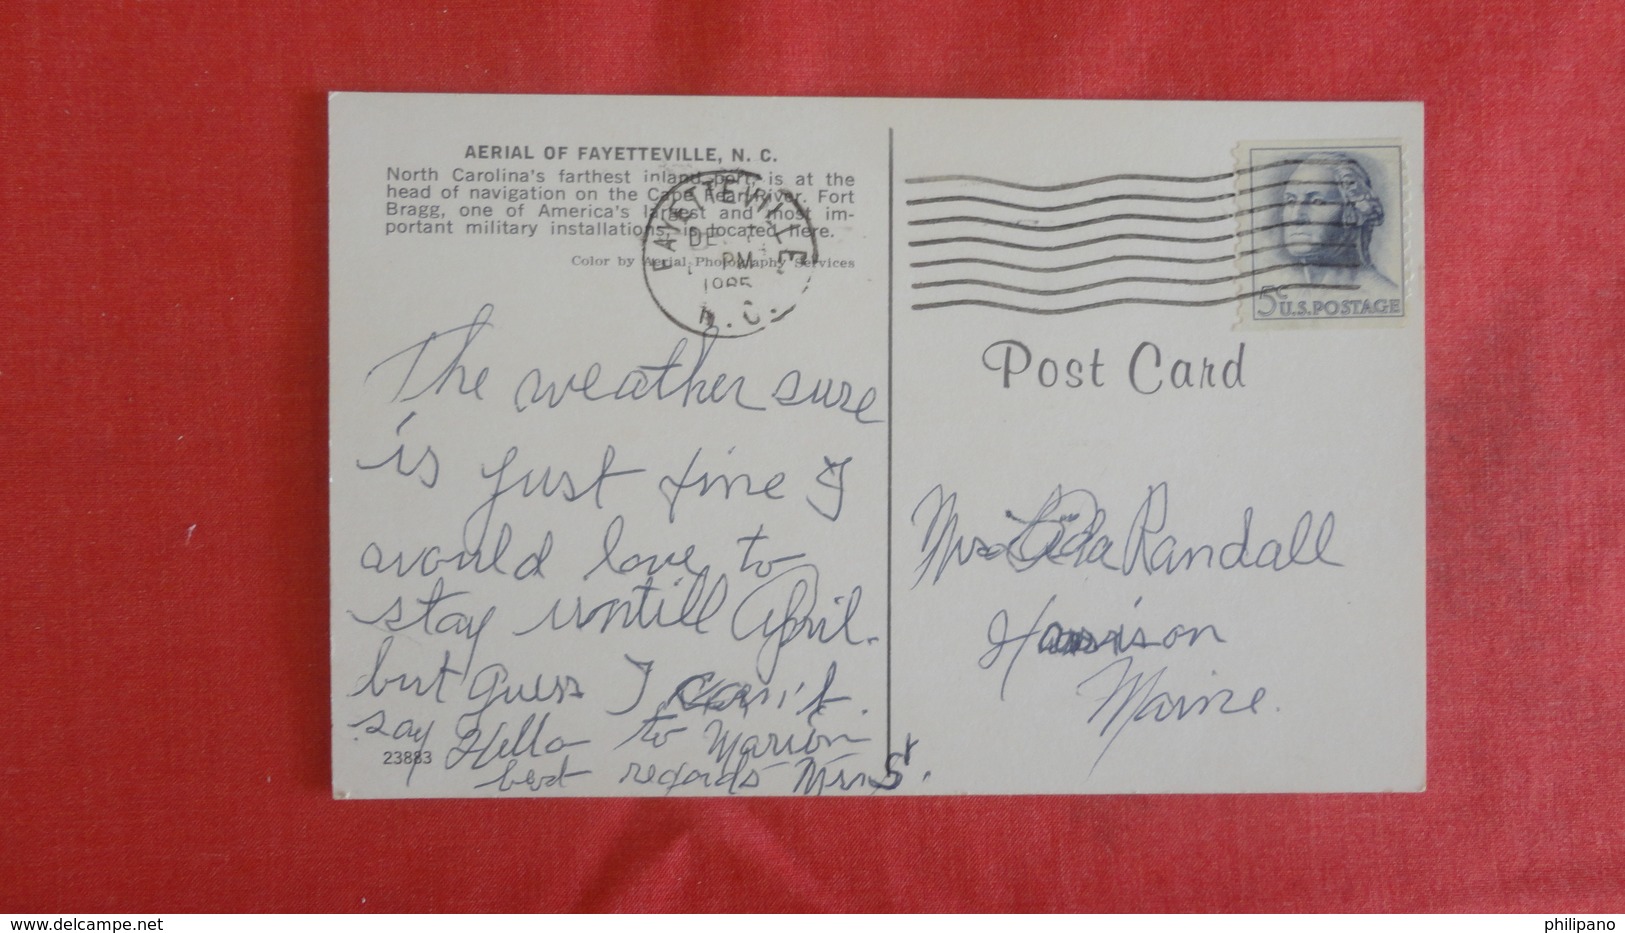 AERIAL OF FAYETTEVILLE, N. C.
North Carolina's farthest inland port, is at the
head of navigation on the Cape Fear River. Fort
Bragg, one of America's largest and most im-
portant military installations, is located here.
Color by Aerial Photography Services
FAYETTEVILLE
PM
N.C.
5c U.S. POSTAGE
Post Card
The weather sure
is just fine I
would love to
stay untill April.
but guess I can't.
say Hello to Marion
best regards Mrs
23883
Mrs Leda Randall
Harrison
Maine.
www.delcampe.net
philipano